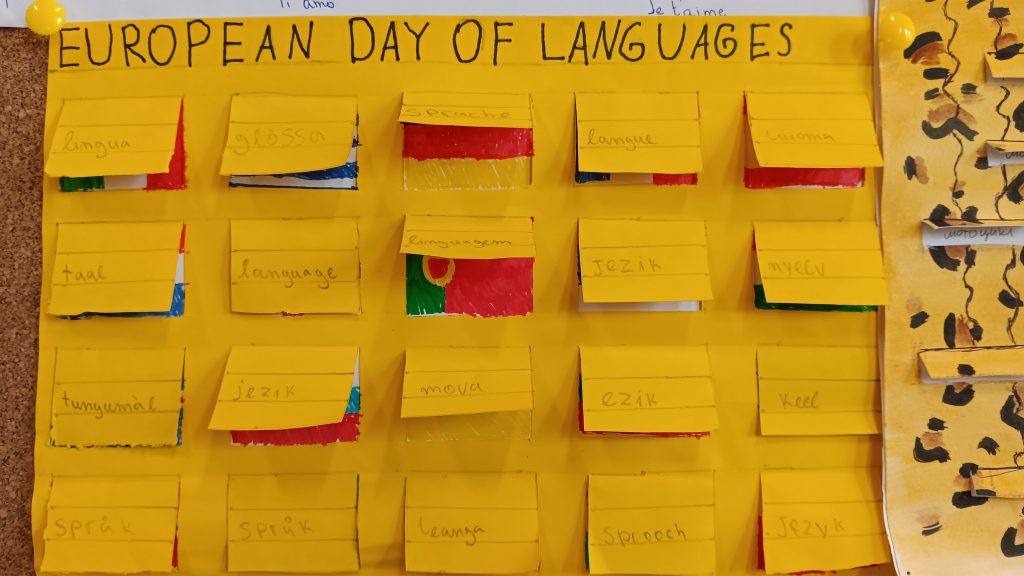 Ti amo
Je t'aime
EUROPEAN DAY OF LANGUAGES
lingua
glossa
Sprache
langue
taal
language
linguagem
jezik
nyelv
tungumàl
jezik
mova
ezik
keel
språk
språk
teanga
sprooch
język